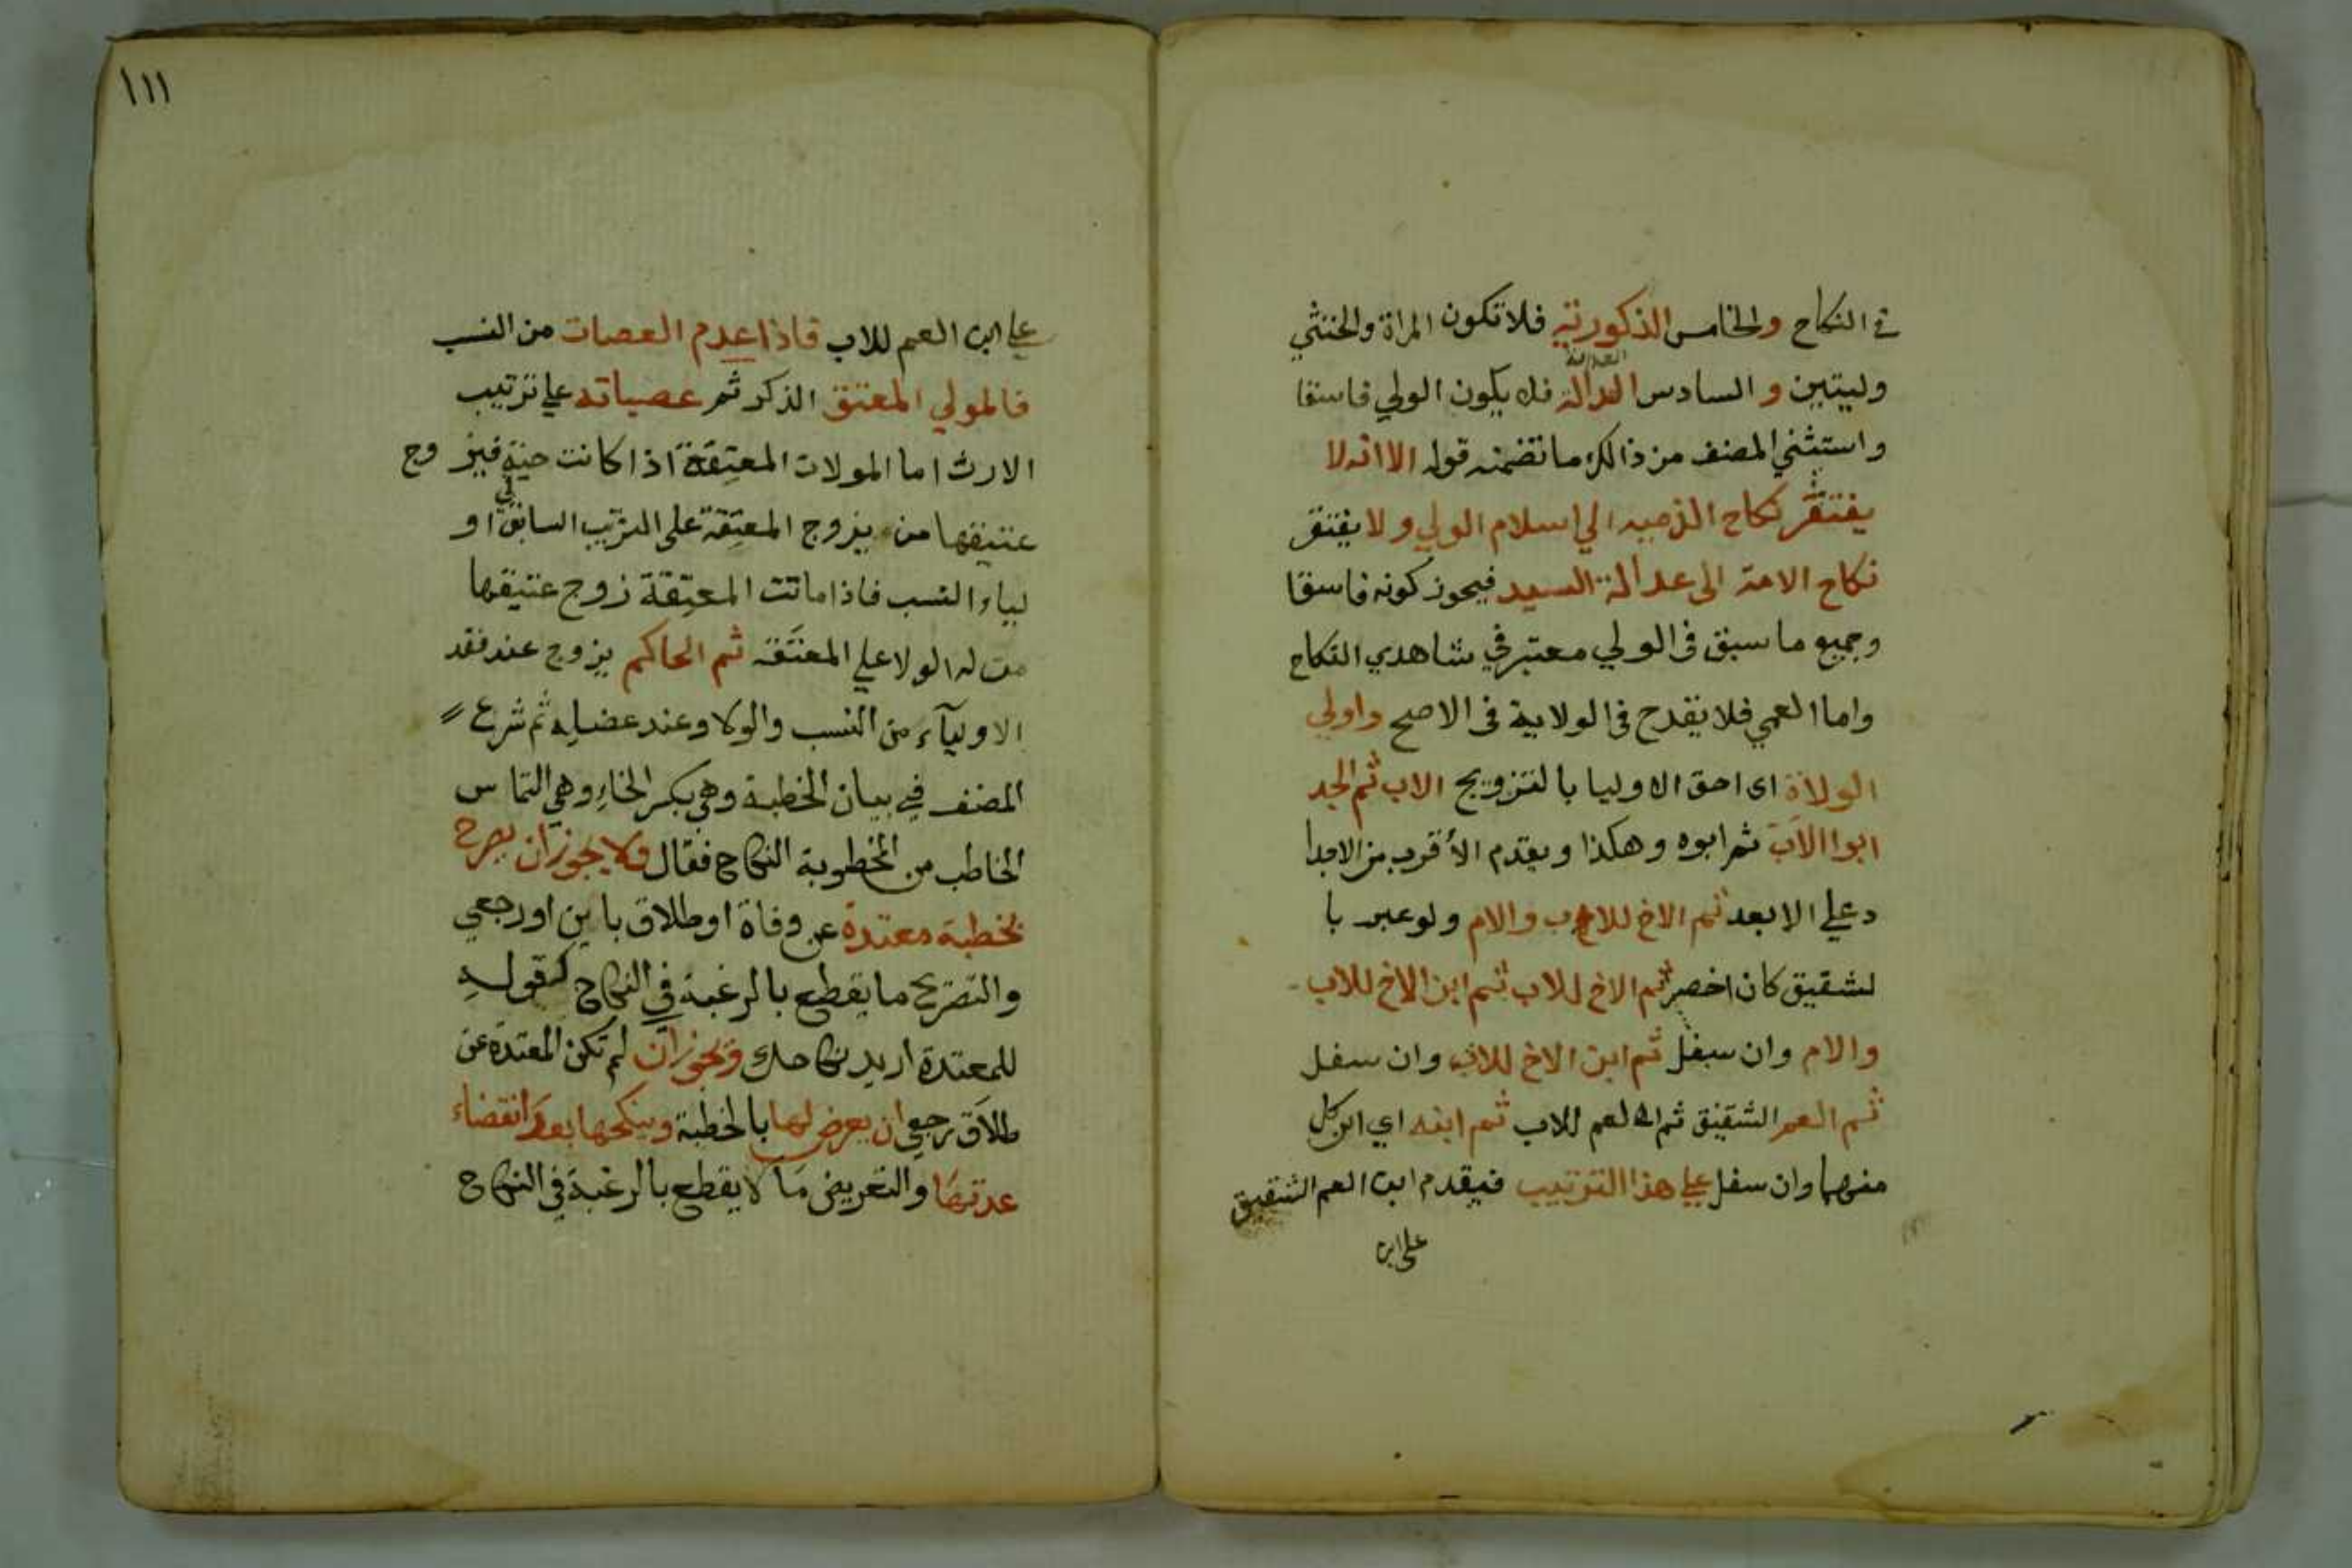 في النكاح والخامس الذكورته فلا تكون المراة والخنثي
العدالة
وليتين و السادس العدالة فلا يكون الولي فاسقا
واستثني المصنف من ذالك ما تضمنه قوله الا انه لا
يفتقر نكاح الذميه الي اسلام الولي و لا يفتقر
نكاح الامة الى عدالة السيد فيجوز كونه فاسقا
وجميع ما سبق فى الولي معتبر في شاهدي النكاح
واما العمي فلا يقدح في الولاية فى الاصح واولي
الولاة اى احق الاوليا بالتزويج الاب ثم الجد
ابوا الاب ثم ابوه وهكذا ويقدم الأقرب من الاجدا
د علي الابعد ثم الاخ للاب والام ولو عبر با
لشقيق كان اخصر ثم الاخ للاب ثم ابن الاخ للاب
والام وان سفل ثم ابن الاخ للاب وان سفل
ثم العم الشقيق ثم العم للاب ثم ابنه اي ابن كل
منهما وان سفل علي هذا الترتيب فيقدم ابن العم الشقيق
على ابن
١١١
علي ابن العم للاب فاذا عدم العصات من النسب
فالمولي المعتق الذكر ثم عصباته علي ترتيب
الارث اما المولات المعتقة اذا كانت حية فيزوج
عتيقها من يزوج المعتقة على الترتيب السابق في او
لياء النسب فاذا ماتت المعتقة زوج عتيقها
من له الولا علي المعتقه ثم الحاكم يزوج عند فقد
الاوليآء من النسب والولا وعند عضله ثم شرع
المصنف في بيان الخطبة وهي بكسر الخاء وهي التماس
الخاطب من المخطوبة النكاح فقال ولا يجوز ان يصرح
بخطبة معتدة عن وفاة او طلاق باين او رجعي
والتصريح ما يقطع بالرغبة في النكاح كقوله
للمعتدة اريد نكاحك ويجوز ان لم تكن المعتدة عن
طلاق رجعي ان يعرض لها بالخطبة وينكحها بعد انقضاء
عدتها والتعريض ما لا يقطع بالرغبة في النكاح